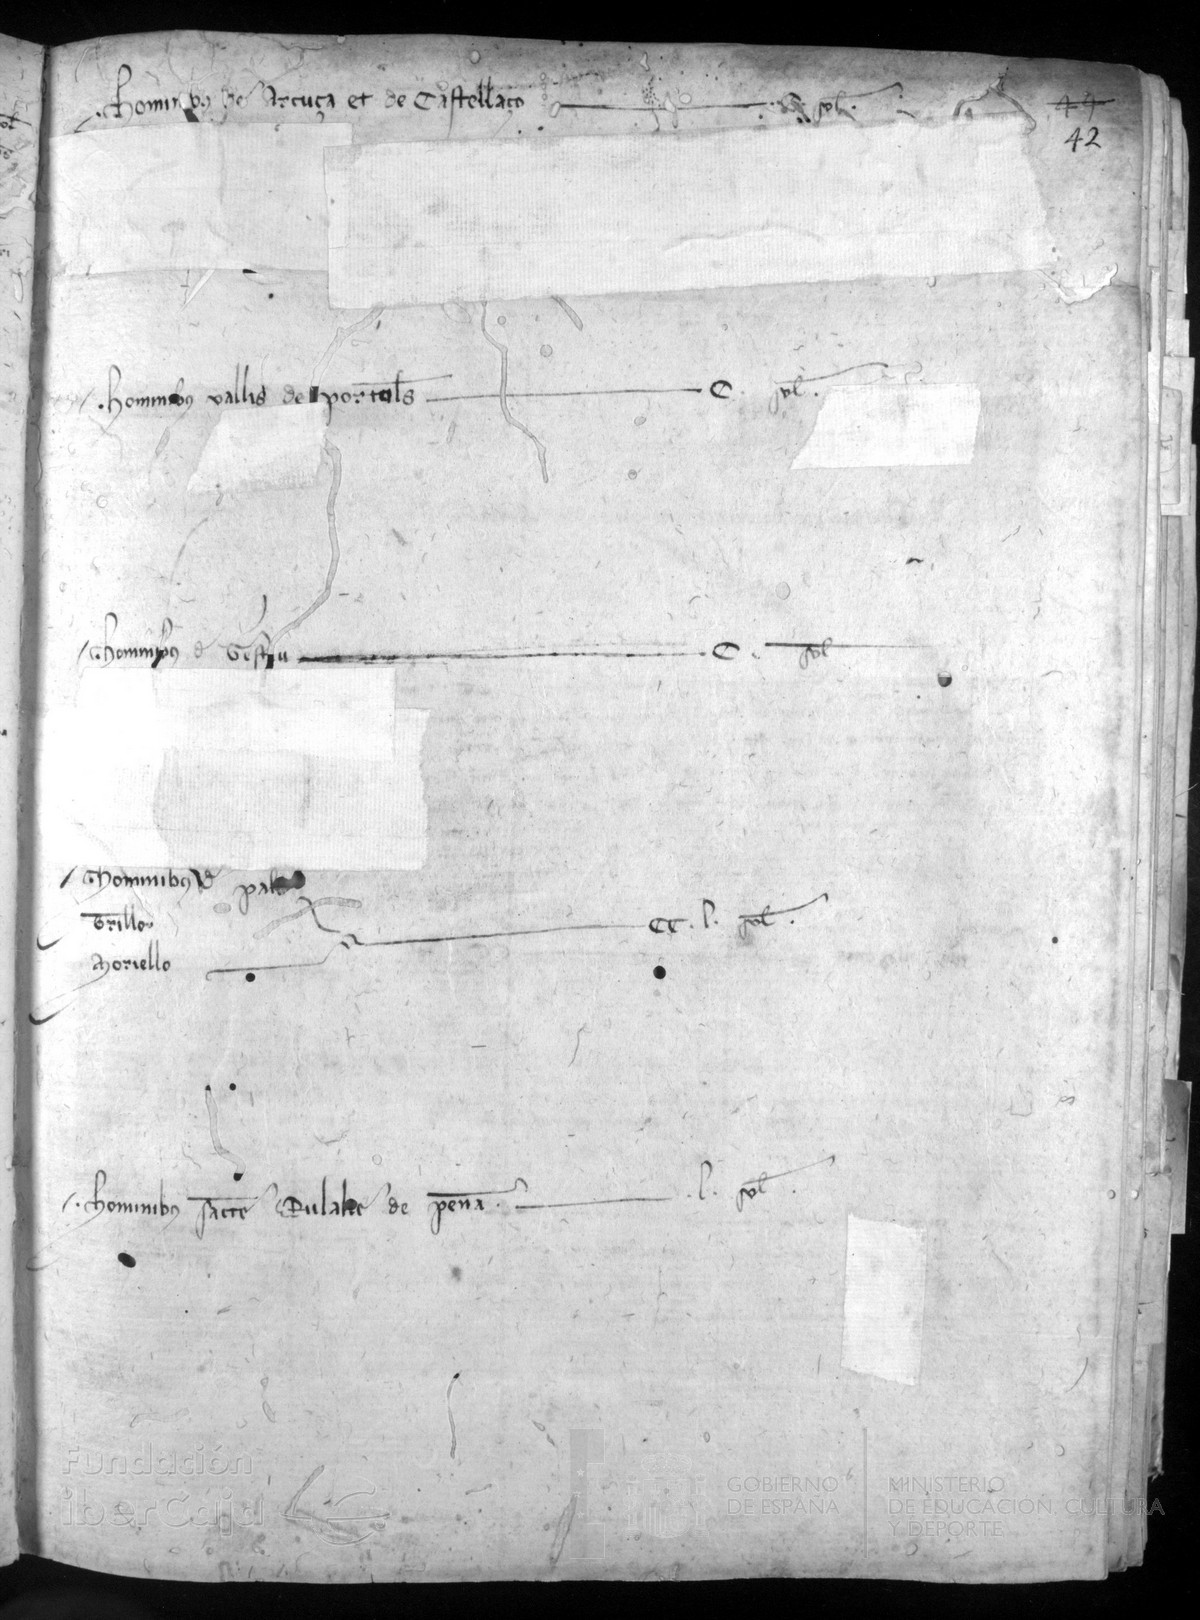 Hominibus de Arcuça et de Castellaço sol.
44
42
Hominibus vallis de portols C. sol.
Hominibus de C. sol
Hominibus de
Trillo CC. l. sol.
Moriello
Hominibus sancte Eulalie de pena l. sol.
Fundación
iberCaja
GOBIERNO
DE ESPAÑA
MINISTERIO
DE EDUCACIÓN, CULTURA
Y DEPORTE